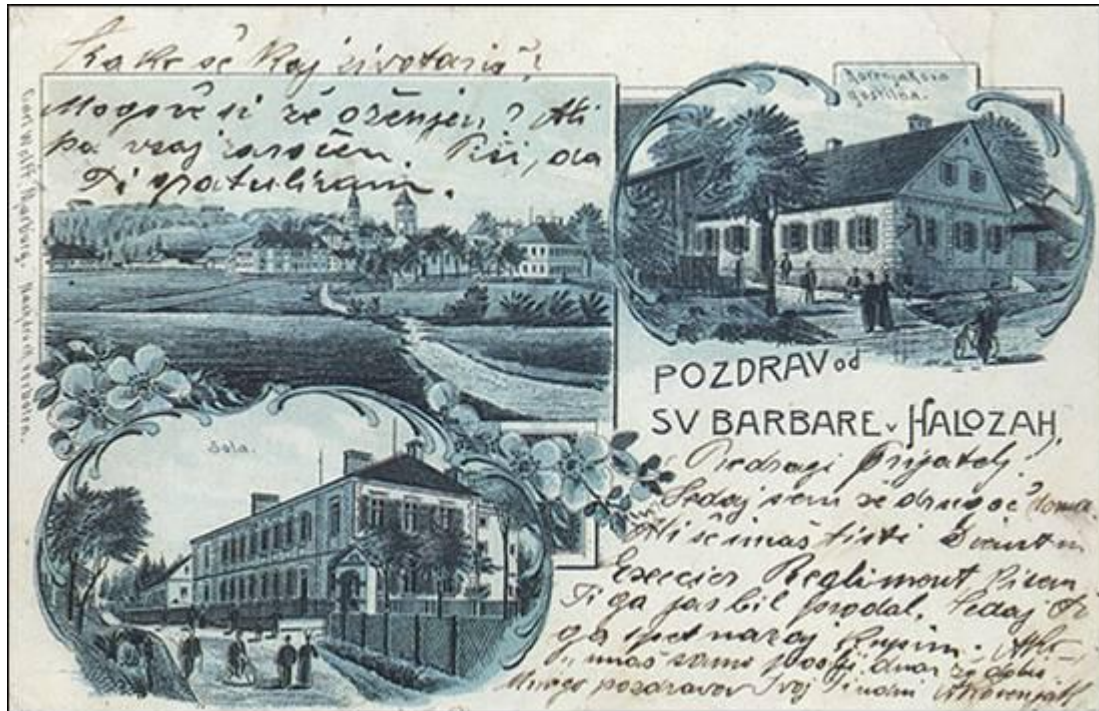 Kako še kaj životariš?
Mogoče si že oženjen? Ali
pa vsaj zaročen. Piši, da
Ti gratuliram.
Korenjakova
gostilna.
Šola.
POZDRAV od
SV BARBARE v HALOZAH
Predragi prijatelj!
Sedaj sem že drugoč doma.
Ali še imaš tisti
Exercier Reglimont
Ti ga jaz bil prodal. Sedaj
ga spet nazaj kupim.
imaš samo
Mnogo pozdravov Tvoj